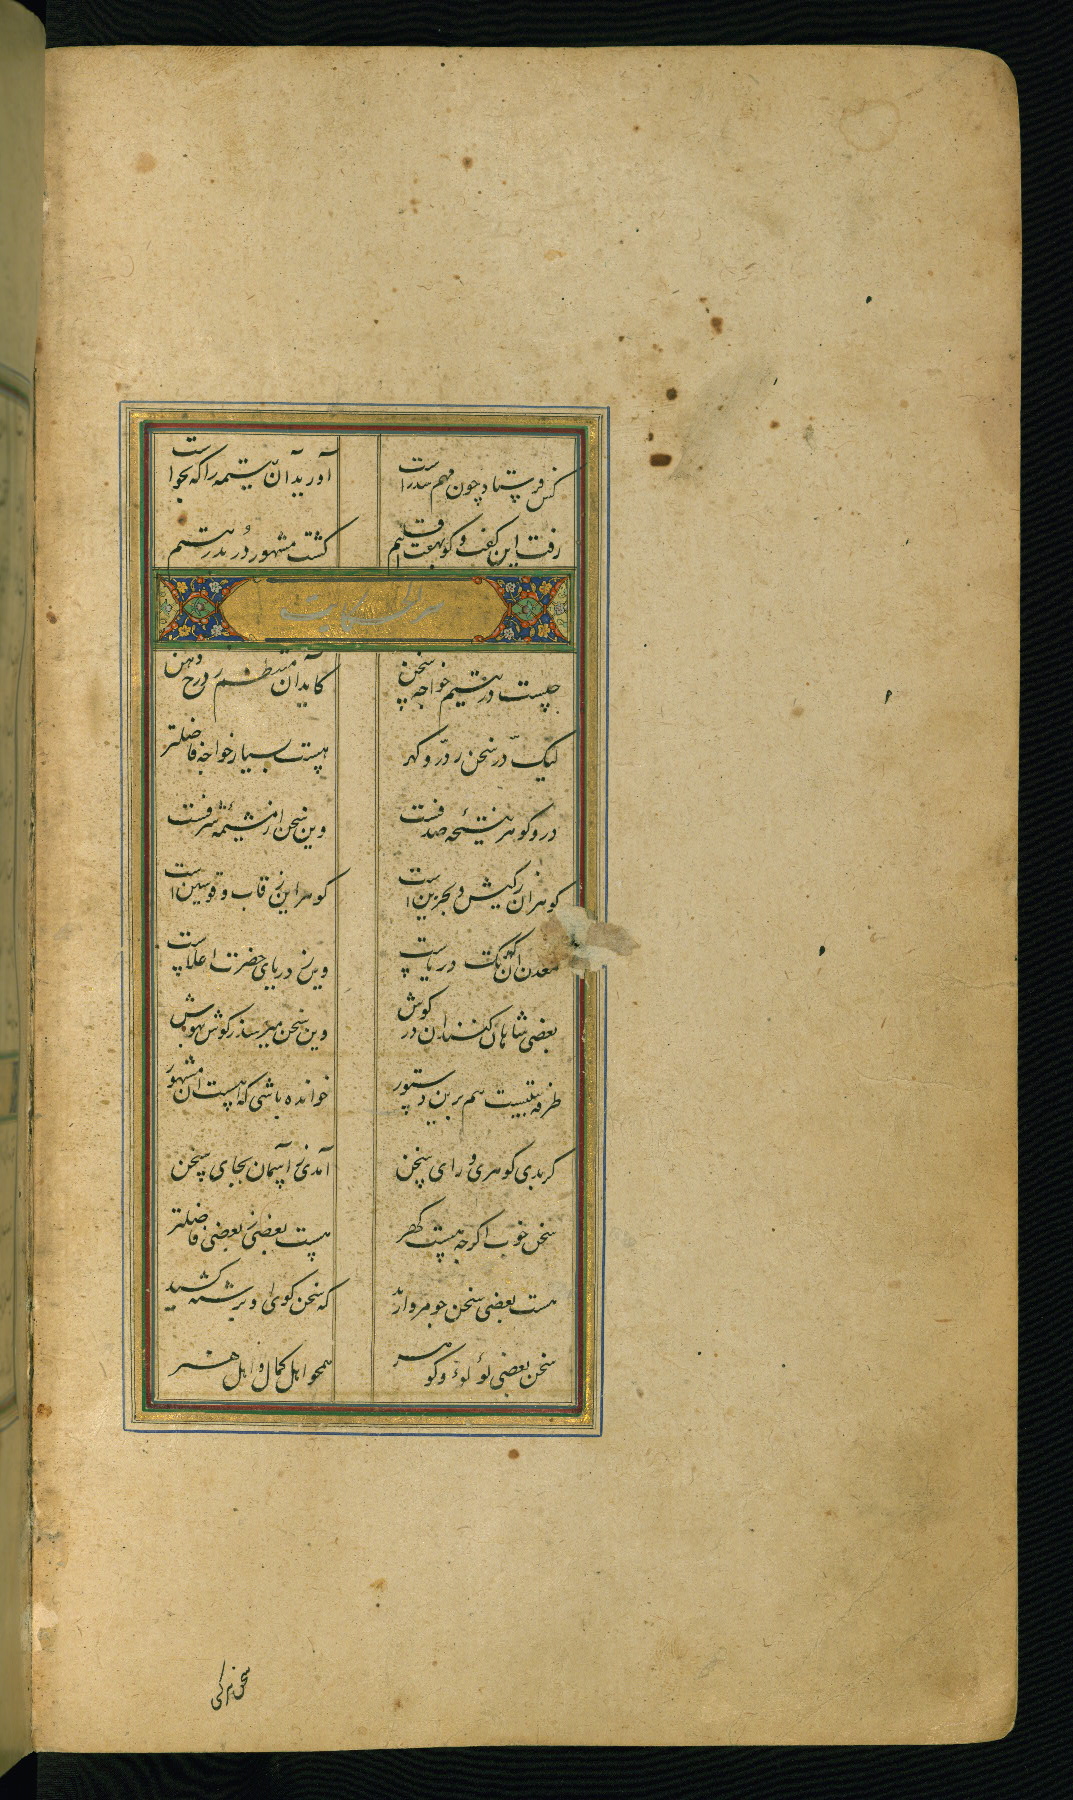 کس فرستاد چون مهم شد راست آورید آن یتیمه را که بجاست
رفت این کفت و کو بهفت اقلیم کشت مشهور دُر بدر یتیم
سر الحکایت
چیست در یتیم خواجه سخن کاید آن منتظم ز درج دهن
لیک در سخن ز در و کهر هست بسیار خواجه فاضلتر
در و کوهر نتیجه صدفست وین سخن از مشیمه شرفست
کوهر آن ز کیش و بحرین است کوهر این ز قاب و قوسین است
معدن آن تک دریاست وین ز دریای حضرت اعلاست
بعضی شاهان کنند آن در کوش وین سخن میرسد ز کوش بهوش
طرفه بیتیست هم برین دستور خوانده باشی که هست آن مشهور
کر بدی کوهری ورای سخن آمدی ز آسمان بجای سخن
سخن خوب اکرچه هست کهر هست بعضی ز بعضی فاضلتر
هست بعضی سخن چو مروارید که سخن کوی در برشته کشید
سخن بعضی لؤلوء و کوهر همچو اهل کمال و اهل هنر
سخن